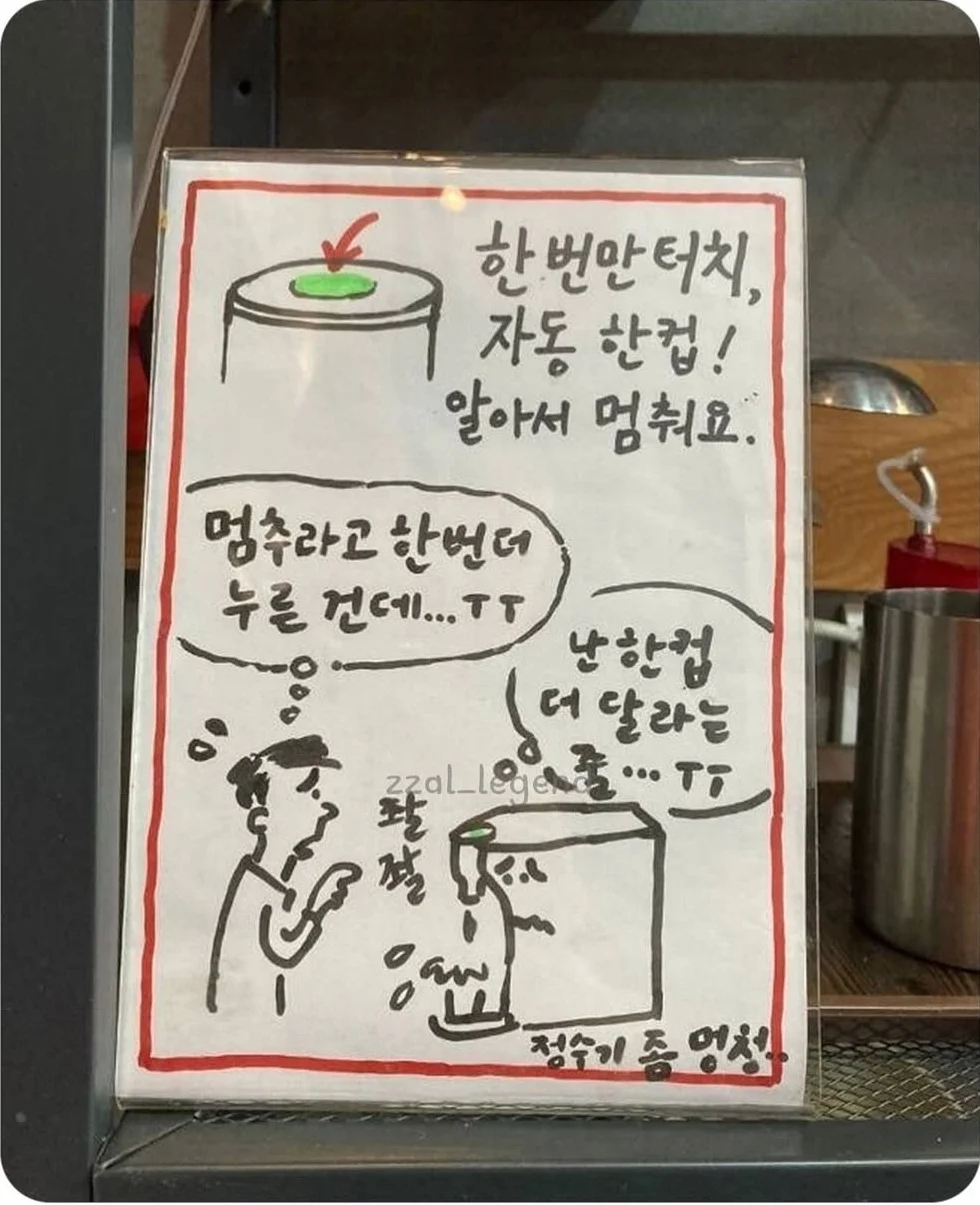 한 번만 터치,
자동 한컵!
알아서 멈춰요.
멈추라고 한번더
누른 건데...ㅜㅜ
난 한컵
더 달라는
줄...ㅜㅜ
zzal_legend
좔
좔
정수기 좀 멍청..